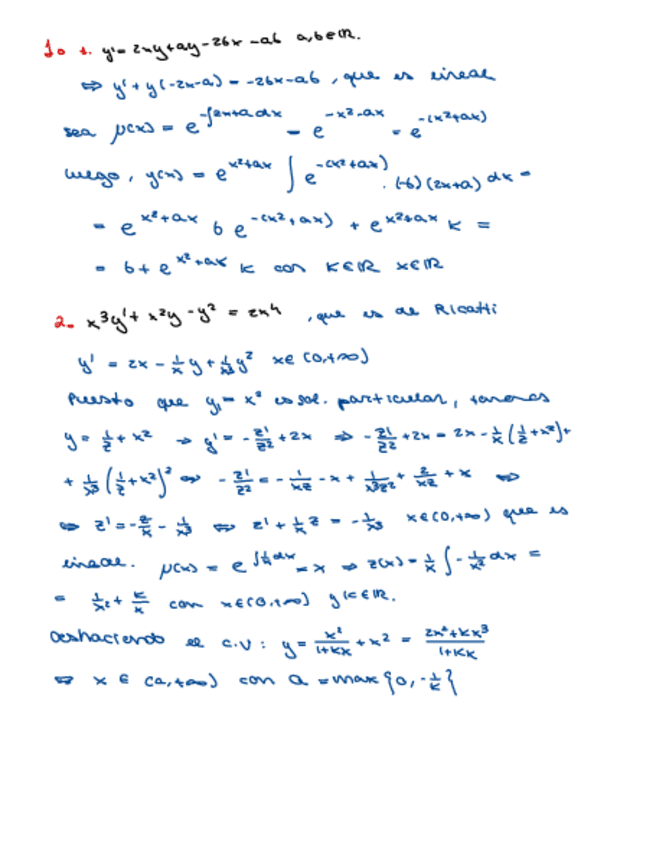 1. 1. y' = 2xy + ay - 2bx - ab a,b ∈ ℝ.
⇔ y' + y(-2x-a) = -2bx-ab, que es lineal
sea μ(x) = e^{-∫2x+a dx} = e^{-x²-ax} = e^{-(x²+ax)}
luego, y(x) = e^{x²+ax} ∫ e^{-(x²+ax)} · (-b)(2x+a) dx =
= e^{x²+ax} b e^{-(x²+ax)} + e^{x²+ax} K =
= b + e^{x²+ax} K con K∈ℝ x∈ℝ
2. x³y' + x²y - y² = 2x⁴, que es de Ricatti
y' = 2x - 1/x y + 1/x³ y² x∈(0,+∞)
Puesto que y₁ = x² es sol. particular, tenemos
y = 1/z + x² ⇒ y' = -z'/z² + 2x ⇒ -z'/z² + 2x = 2x - 1/x (1/z + x²) +
+ 1/x³ (1/z + x²)² ⇔ -z'/z² = -1/xz - x + 1/x³z² + 2/xz + x ⇔
⇔ z' = -z/x - 1/x³ ⇔ z' + 1/x z = -1/x³ x∈(0,+∞) que es
lineal. μ(x) = e^{∫1/x dx} = x ⇒ z(x) = 1/x ∫ -1/x² dx =
= 1/x² + K/x con x∈(0,+∞) y K∈ℝ.
Deshaciendo el c.v: y = x²/1+Kx + x² = 2x²+Kx³/1+Kx
⇔ x ∈ (a,+∞) con a = max{0, -1/K}